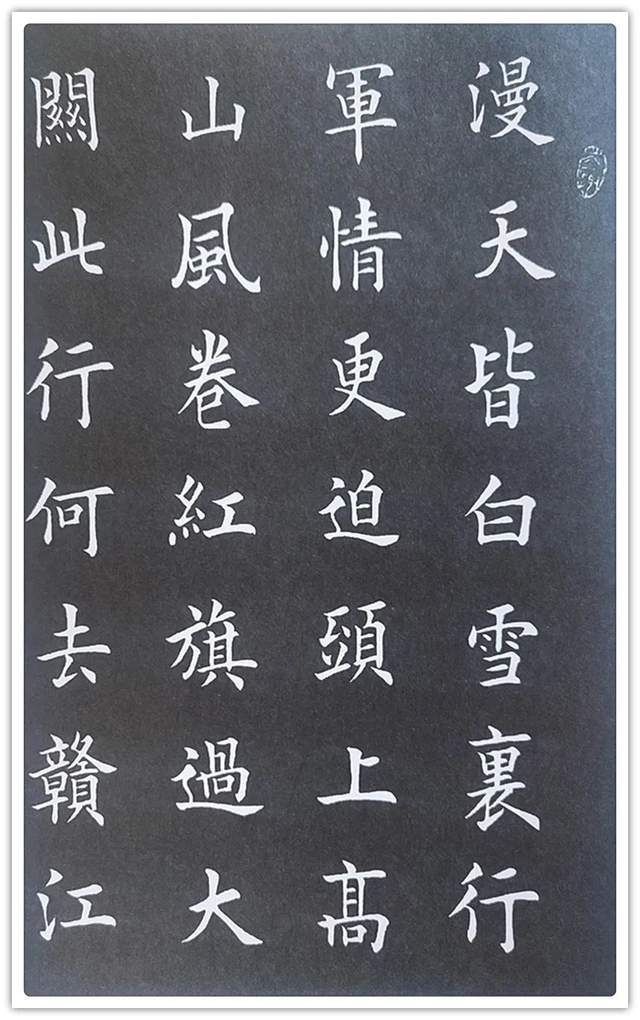 漫天皆白雪裏行
軍情更迫頭上高
山風卷紅旗過大
關此行何去贛江